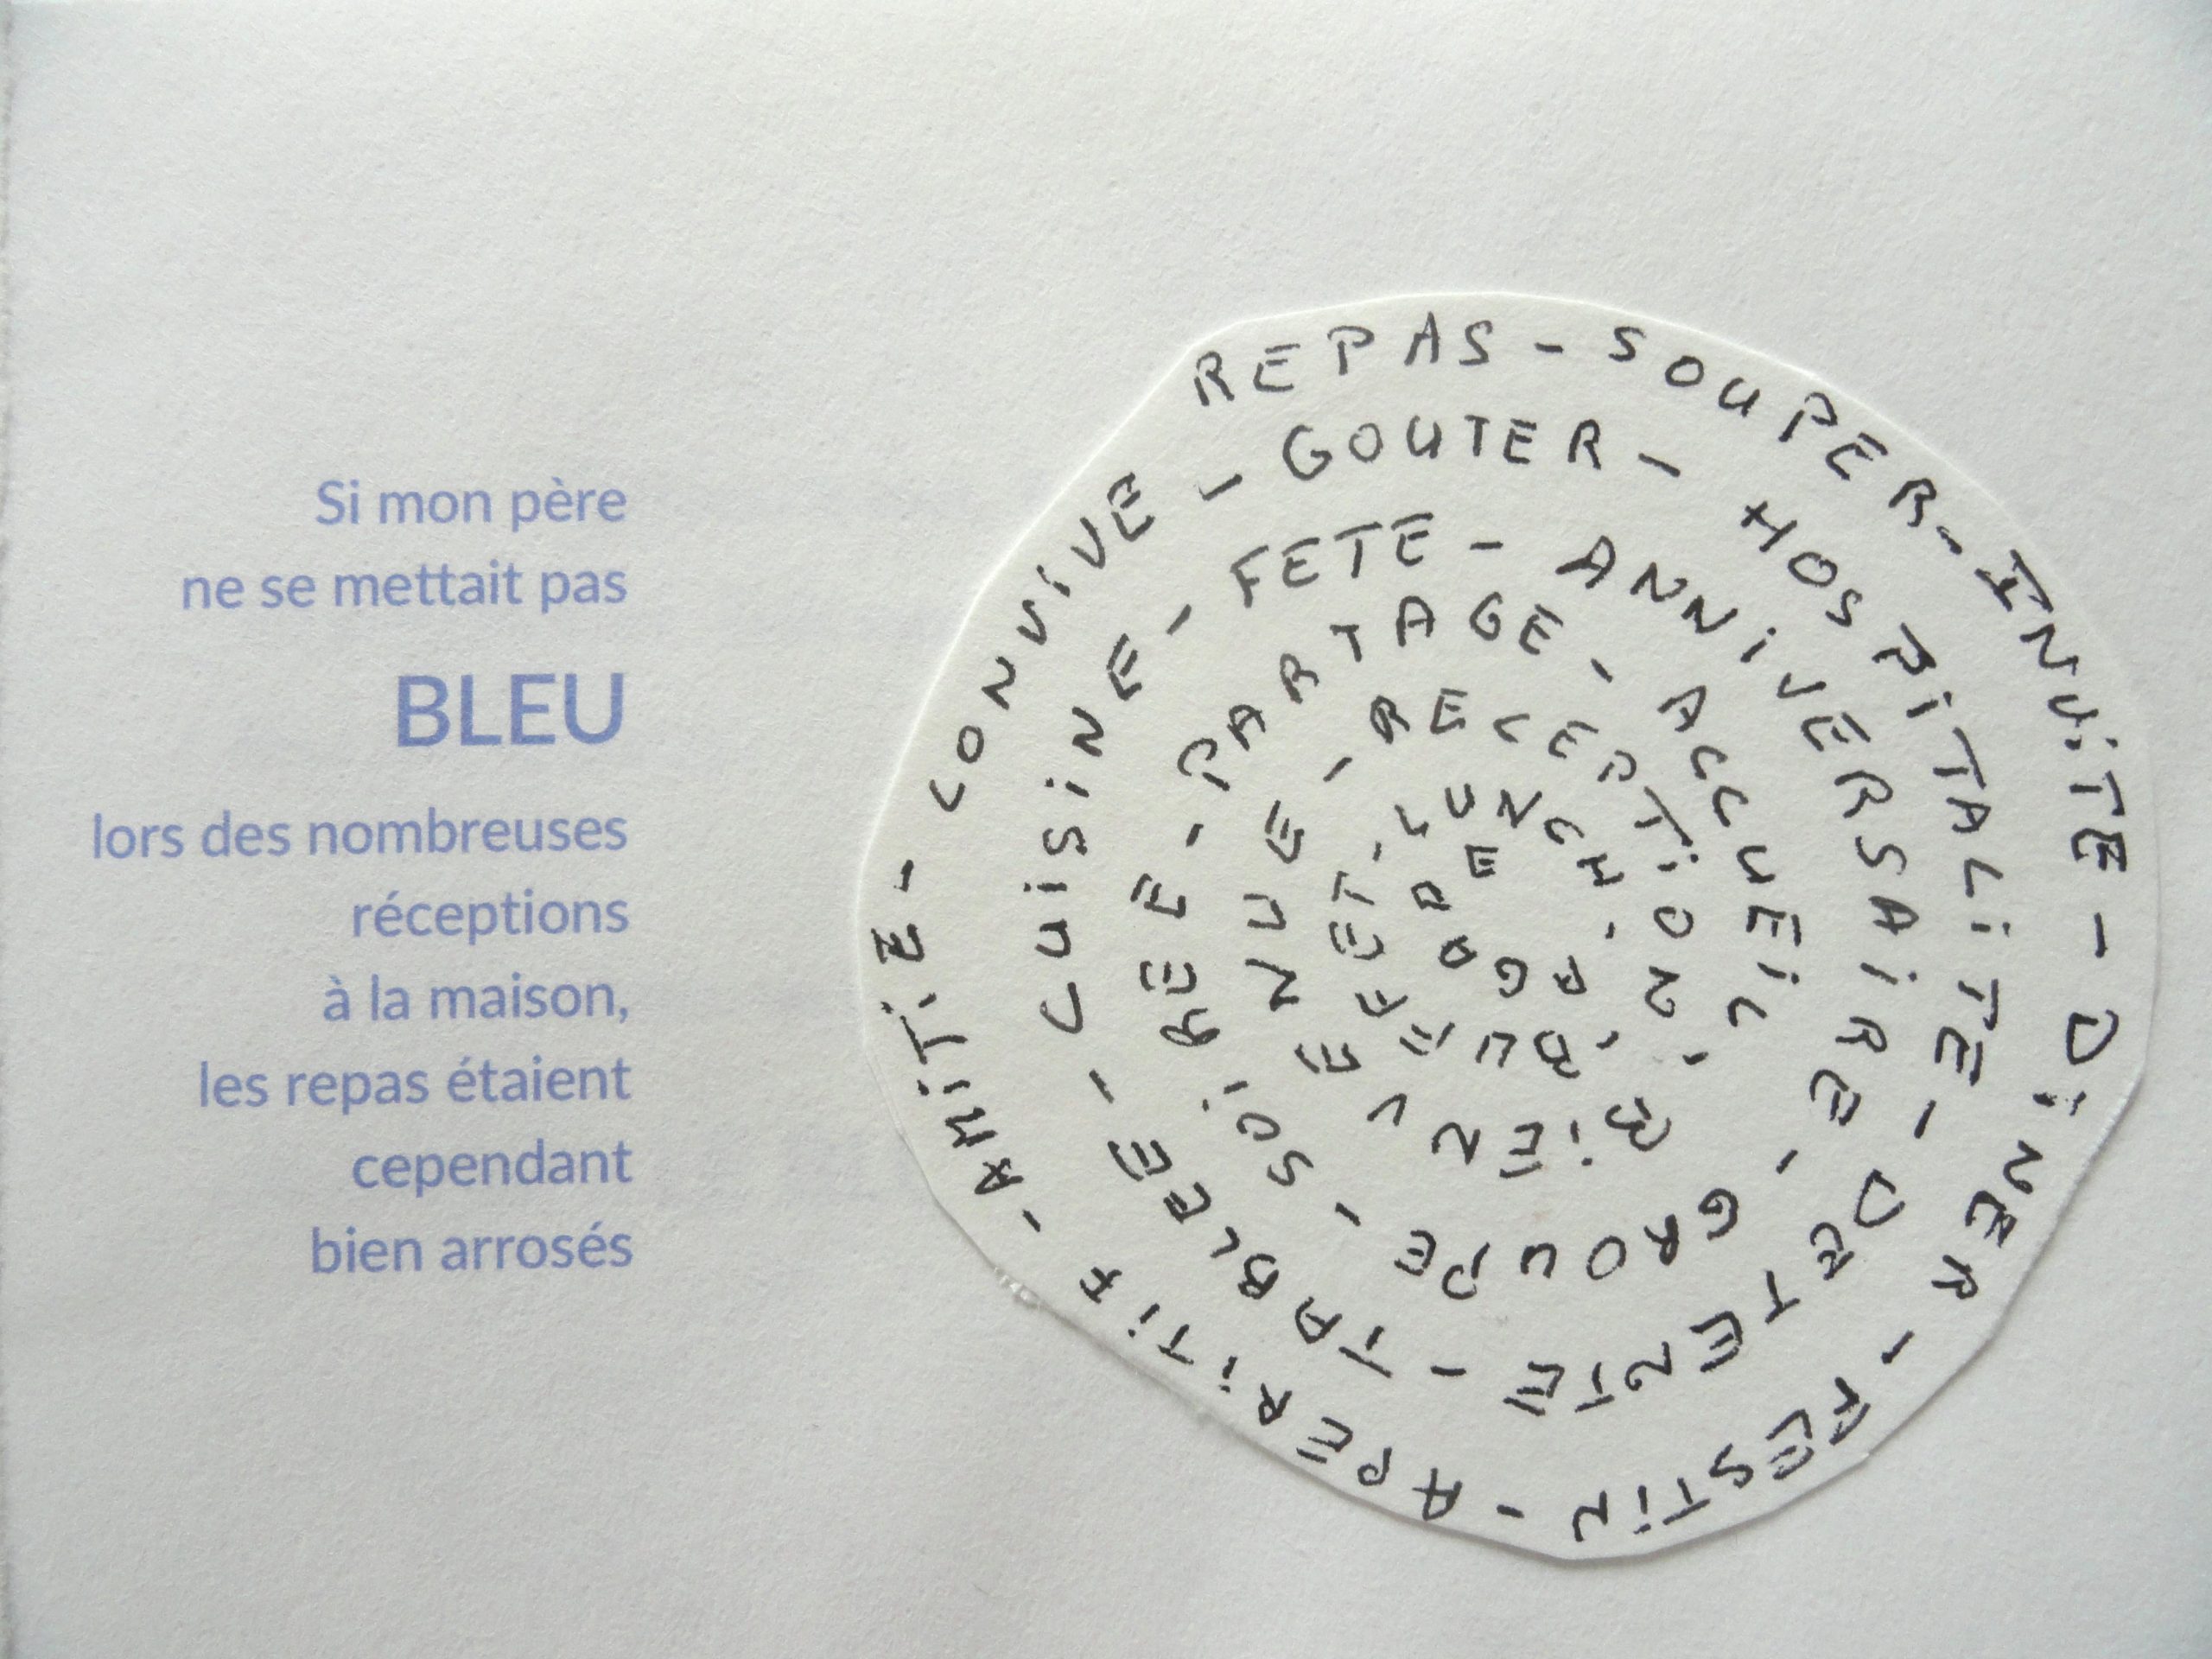 Si mon père
ne se mettait pas
BLEU
lors des nombreuses
réceptions
à la maison,
les repas étaient
cependant
bien arrosés
REPAS - SOUPER - INVITE - DINER - FESTIN - APERITIF - AMITIE - CONVIVE - GOUTER - HOSPITALITE - DETENTE - TABLEE - CUISINE - FETE - ANNIVERSAIRE - GROUPE - SOIREE - PARTAGE - ACCUEIL - BIENVENUE - RECEPTION - BUFFET - LUNCH - AGAPE